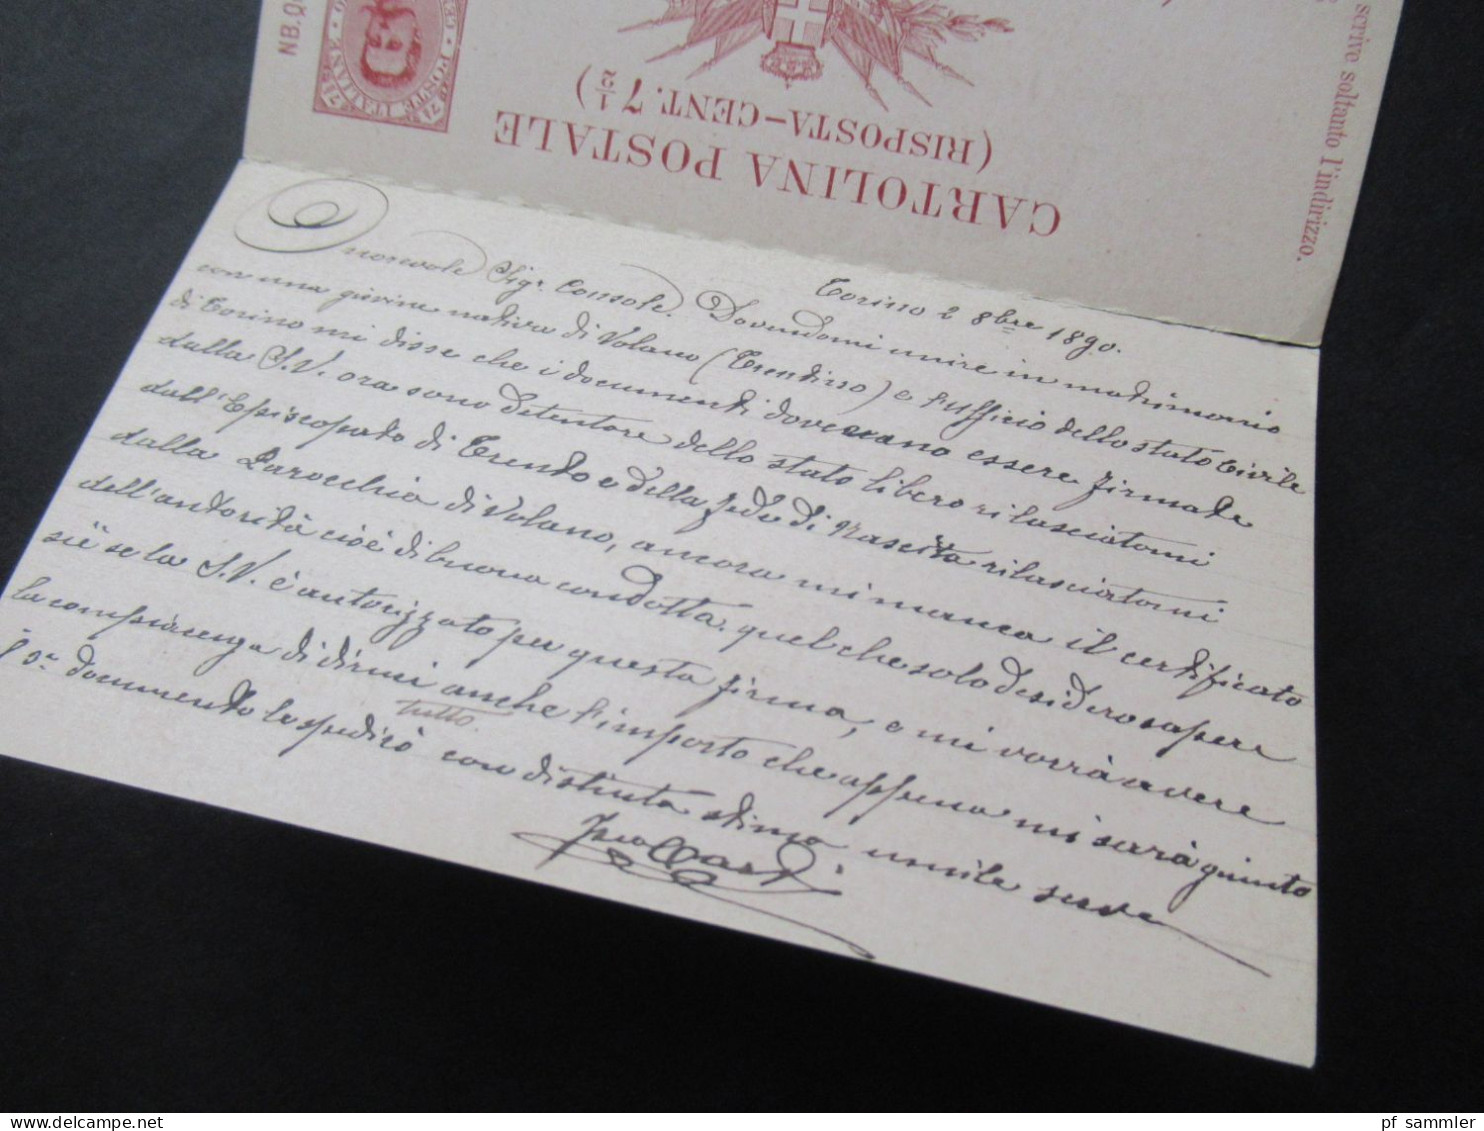 NB. Qu
POSTE ITALIANE
CARTOLINA POSTALE
(RISPOSTA-CENT. 7 1/2)
scrive soltanto l'indirizzo.
Torino 2 8bre 1890.
Onorevole Sigr. Console. Dovendomi unire in matrimonio
con una giovine nativa di Volano (Trentino) e l'Ufficio dello stato Civile
di Torino mi disse che i documenti dovevano essere firmate
dalla S.V. ora sono detentore dello stato libero rilasciatomi
dall'Episcopato di Trento e della fede di Nascita rilasciatomi
dalla Parocchia di Volano, ancora mi manca il certificato
dell'autorità cioè di buona condotta. quel che solo desidero sapere
si è se la S.V. è autorizzato per questa firma, e mi vorrà avere
la compiacenza di dirmi anche l'importo che appena mi sarà giunto
tutto
documento lo spedirò con distinta stima umile servo
pf sammler